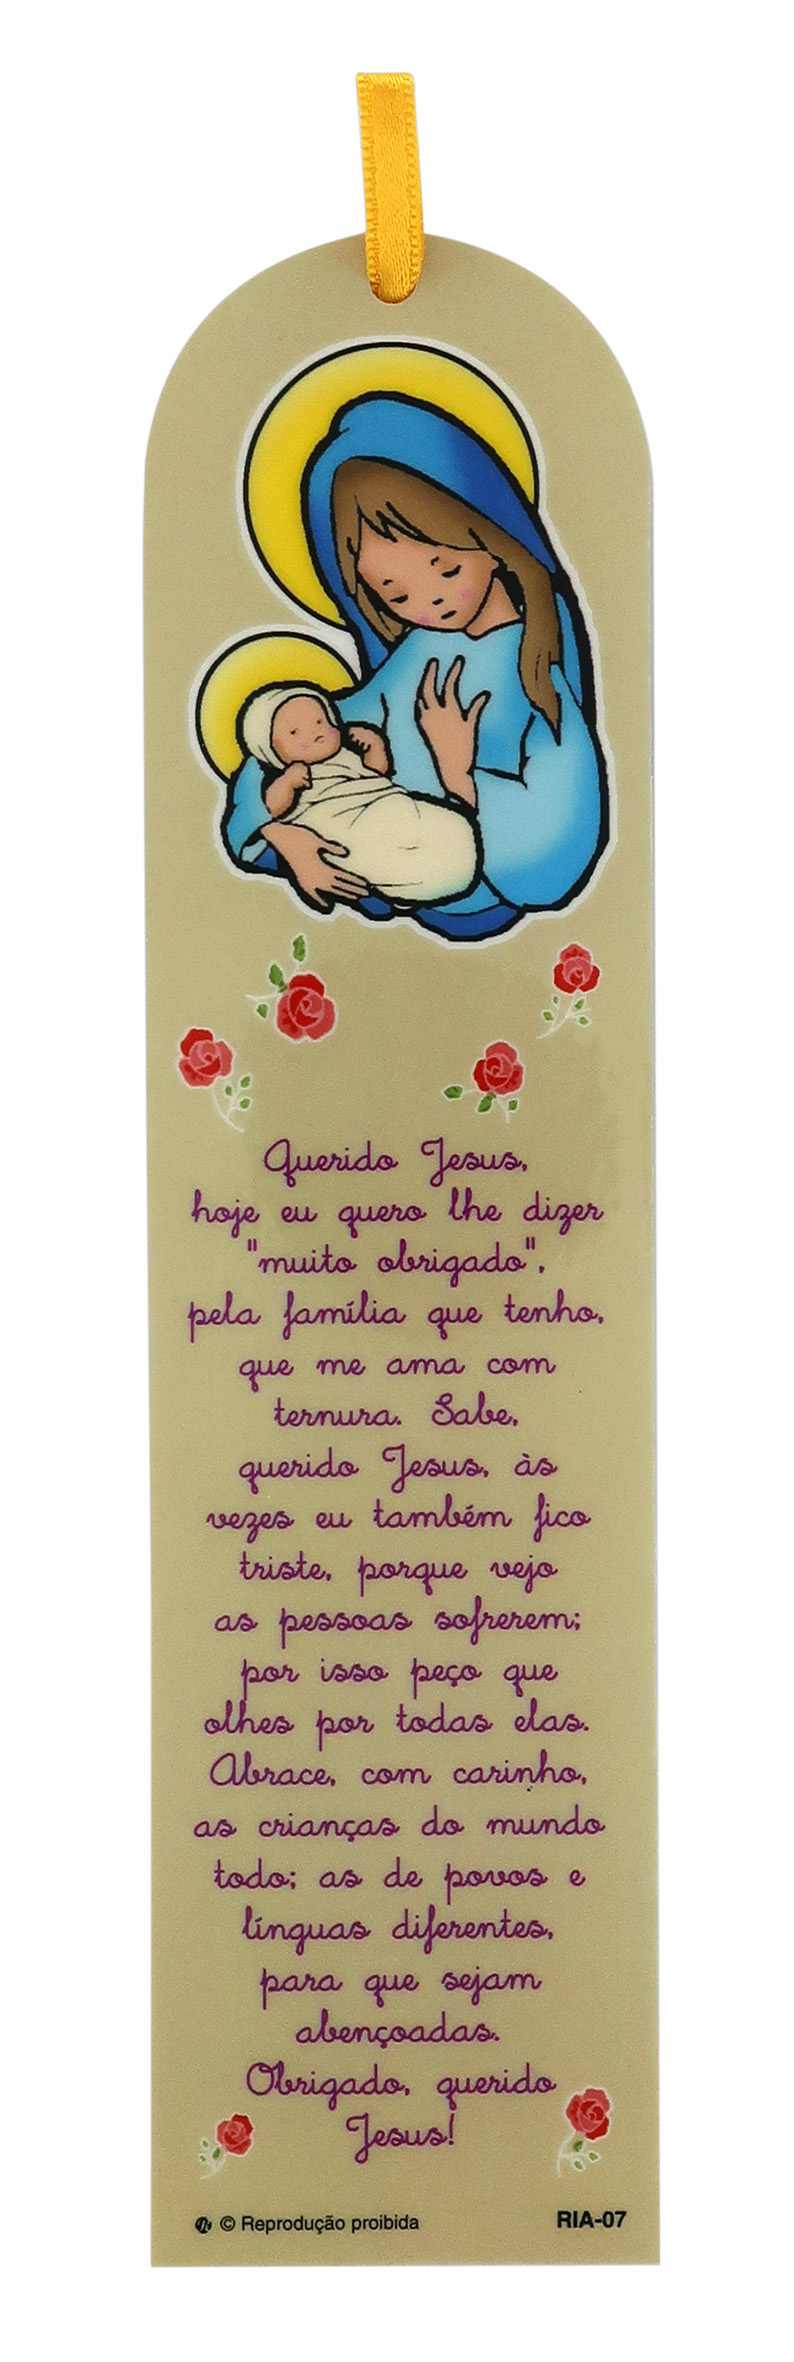 Querido Jesus,
hoje eu quero lhe dizer
"muito obrigado",
pela família que tenho,
que me ama com
ternura. Sabe,
querido Jesus, às
vezes eu também fico
triste, porque vejo
as pessoas sofrerem;
por isso peço que
olhes por todas elas.
Abrace, com carinho,
as crianças do mundo
todo; as de povos e
línguas diferentes,
para que sejam
abençoadas.
Obrigado, querido
Jesus!
© Reprodução proibida RIA-07